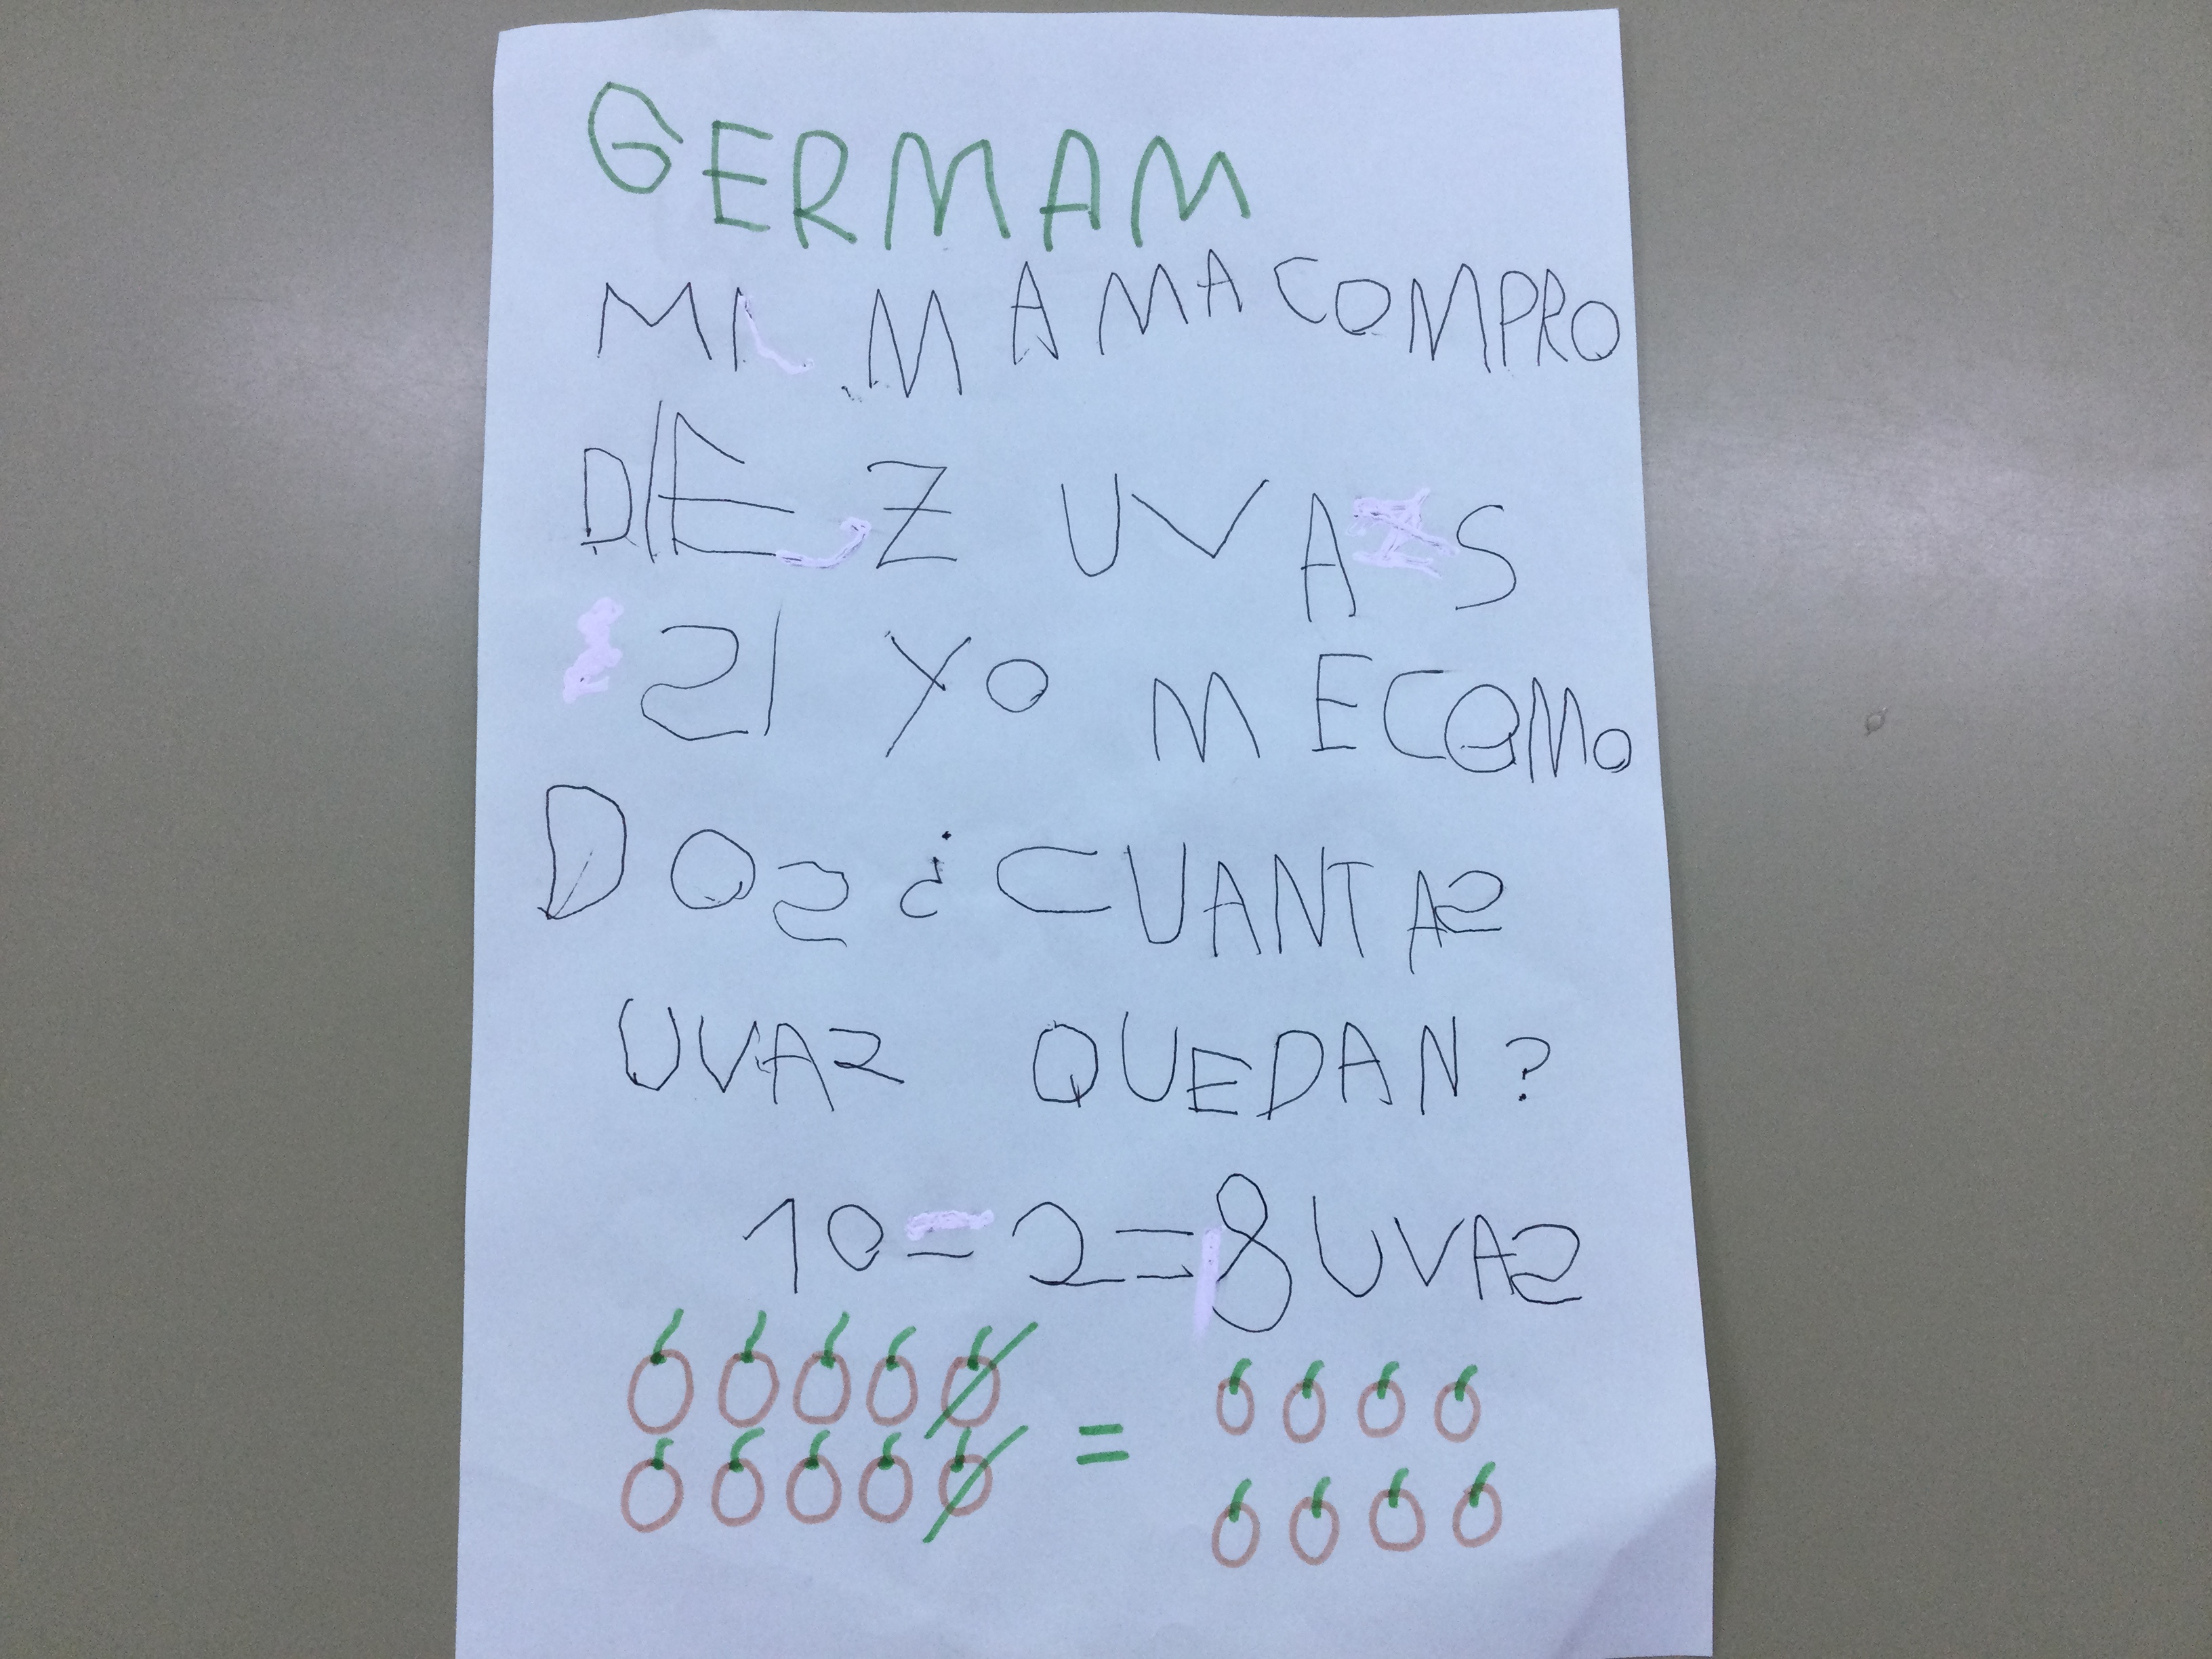 GERMAM
MI MAMA COMPRO
DIEZ UVAS
SI YO ME COMO
DOS ¿CUANTAS
UVAS QUEDAN?
10-2=8 UVAS
=